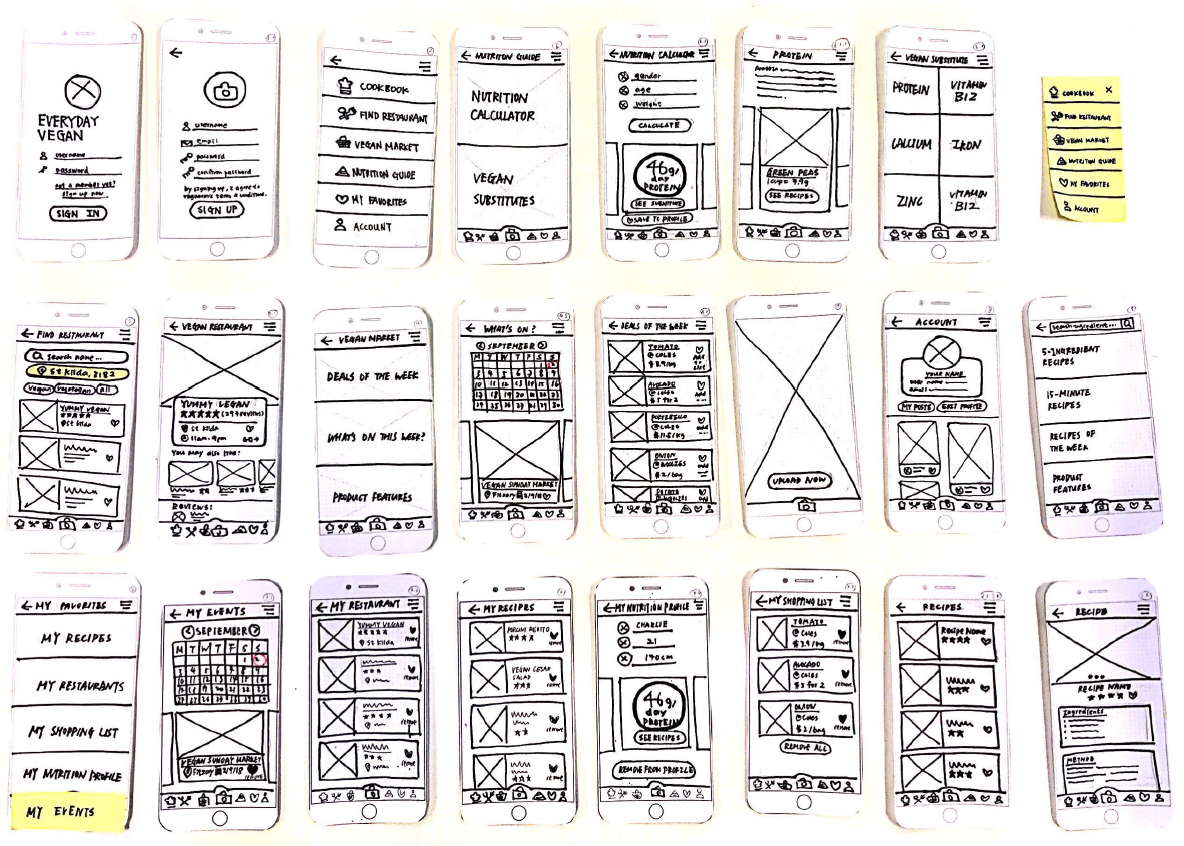 EVERYDAY
VEGAN
username
password
not a member yet?
sign up now
SIGN IN
username
email
password
confirm password
SIGN UP
COOKBOOK
FIND RESTAURANT
VEGAN MARKET
NUTRITION GUIDE
MY FAVORITES
ACCOUNT
NUTRITON GUIDE
NUTRITION
CALCULATOR
VEGAN
SUBSTITUTES
NUTRITION CALCULATOR
gender
age
weight
CALCULATE
46g/
day
PROTEIN
SEE SUBSTITUTE
SAVE TO PROFILE
PROTEIN
GREEN PEAS
SEE RECIPES
VEGAN SUBSTITUTE
PROTEIN
VITAMIN
B12
CALCIUM
IRON
ZINC
VITAMIN
B12
COOKBOOK X
FIND RESTAURANT
VEGAN MARKET
NUTRITION GUIDE
MY FAVORITES
ACCOUNT
FIND RESTAURANT
search name...
St Kilda, 3182
Vegan Vegetarian All
YUMMY VEGAN
St Kilda
VEGAN RESTAURANT
YUMMY VEGAN
St Kilda
11am-9pm
You may also like:
REVIEWS:
VEGAN MARKET
DEALS OF THE WEEK
WHAT'S ON THIS WEEK?
PRODUCT FEATURES
WHAT'S ON?
SEPTEMBER
M T W T F S S
1 2
3 4 5 6 7 8 9
10 11 12 13 14 15 16
17 18 19 20 21 22 23
24 25 26 27 28 29 30
VEGAN SUNDAY MARKET
Fitzroy 2/9/18
DEALS OF THE WEEK
TOMATO
@ COLES
$3.9/kg
add
to
list
AVOCADO
@ coles
add
PORTEBELLO
@ COLES
add
ONION
$2/bag
add
UPLOAD NOW
ACCOUNT
YOUR NAME
MY POSTS
EDIT PROFILE
search ingredient...
5-INGREDIENT
RECIPES
15-MINUTE
RECIPES
RECIPES OF
THE WEEK
PRODUCT
FEATURES
MY FAVORITES
MY RECIPES
MY RESTAURANTS
MY SHOPPING LIST
MY NUTRITION PROFILE
MY EVENTS
MY EVENTS
SEPTEMBER
M T W T F S S
1 2
3 4 5 6 7 8 9
10 11 12 13 14 15 16
17 18 19 20 21 22 23
VEGAN SUNDAY MARKET
Fitzroy 2/9/18
remove
MY RESTAURANT
YUMMY VEGAN
St Kilda
remove
remove
MY RECIPES
remove
VEGAN CESAR
SALAD
remove
remove
remove
MY NUTRITION PROFILE
CHARLIE
21
170 cm
46g/
day
PROTEIN
SEE RECIPES
REMOVE FROM PROFILE
MY SHOPPING LIST
TOMATO
@ Coles
$3.9/kg
remove
AVOCADO
@ coles
$5 for 2
remove
ONION
@ Coles
$2/bag
remove
REMOVE ALL
RECIPES
Recipe Name
RECIPE
RECIPE NAME
Ingredients
METHOD